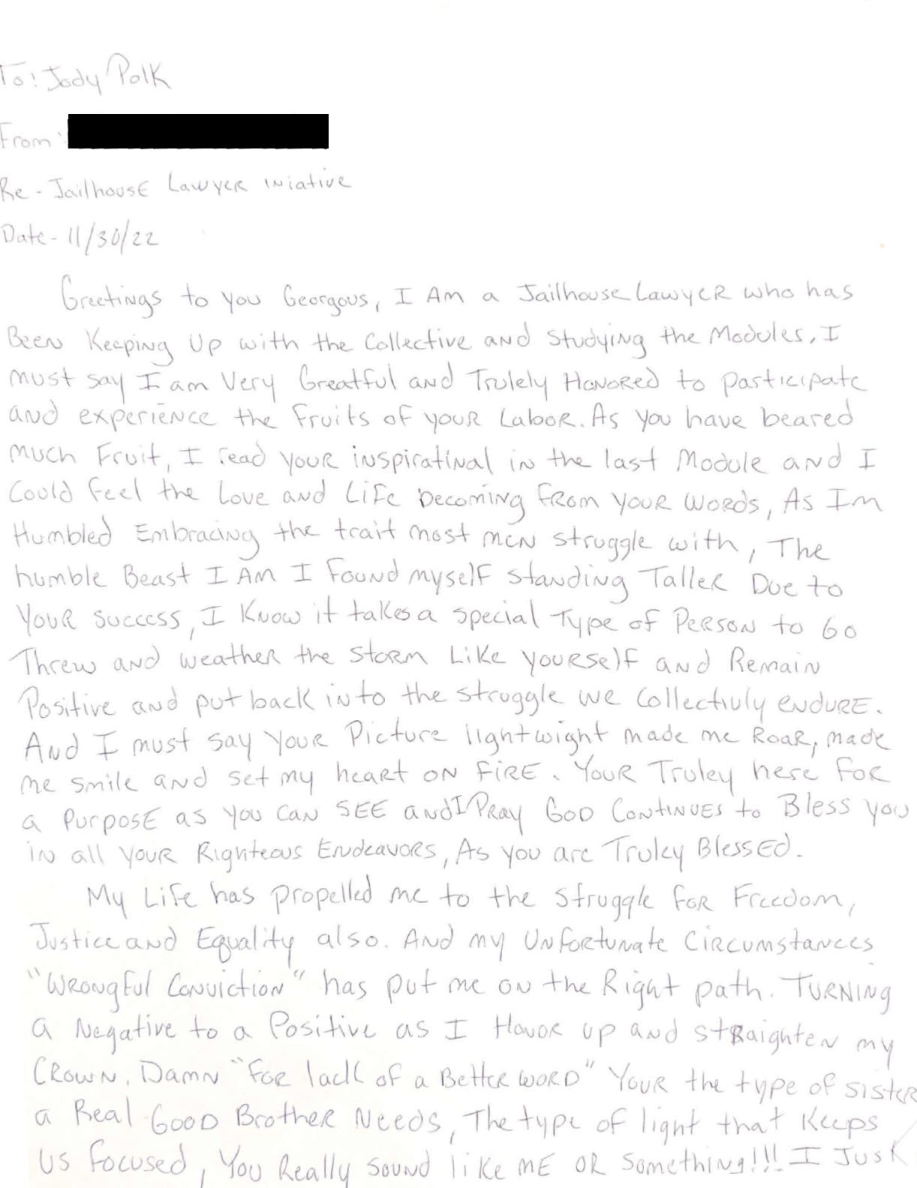 To: Jody Polk
From:
Re - Jailhouse Lawyer Iniative
Date - 11/30/22
Greetings to you Georgous, I Am a Jailhouse Lawyer who has
Been Keeping Up with the Collective and Studying the Modules, I
must say I am Very Greatful and Trulely Honored to participate
and experience the Fruits of your Labor. As you have beared
much Fruit, I read your inspiratinal in the last Module and I
Could feel the Love and Life becoming from your words, As Im
Humbled Embracing the trait most men struggle with, The
humble Beast I Am I Found myself standing Taller Due to
Your Success, I Know it takes a special Type of Person to Go
Threw and weather the Storm Like yourself and Remain
Positive and put back into the struggle we Collectivly endure.
And I must say Your Picture lightwight made me Roar, made
me smile and set my heart on Fire. Your Truley here For
a Purpose as you can SEE and I Pray God Continues to Bless you
in all your Righteous Endeavors, As you are Truley Blessed.
My Life has propelled me to the struggle for Freedom,
Justice and Equality also. And my Unfortunate Circumstances
"Wrongful Conviction" has put me on the Right path. Turning
a Negative to a Positive as I Honor up and straighten my
Crown. Damn "For lack of a Better word" Your the type of sister
a Real Good Brother Needs, The type of light that Keeps
us focused, You Really Sound like me or something!!! I Jusk